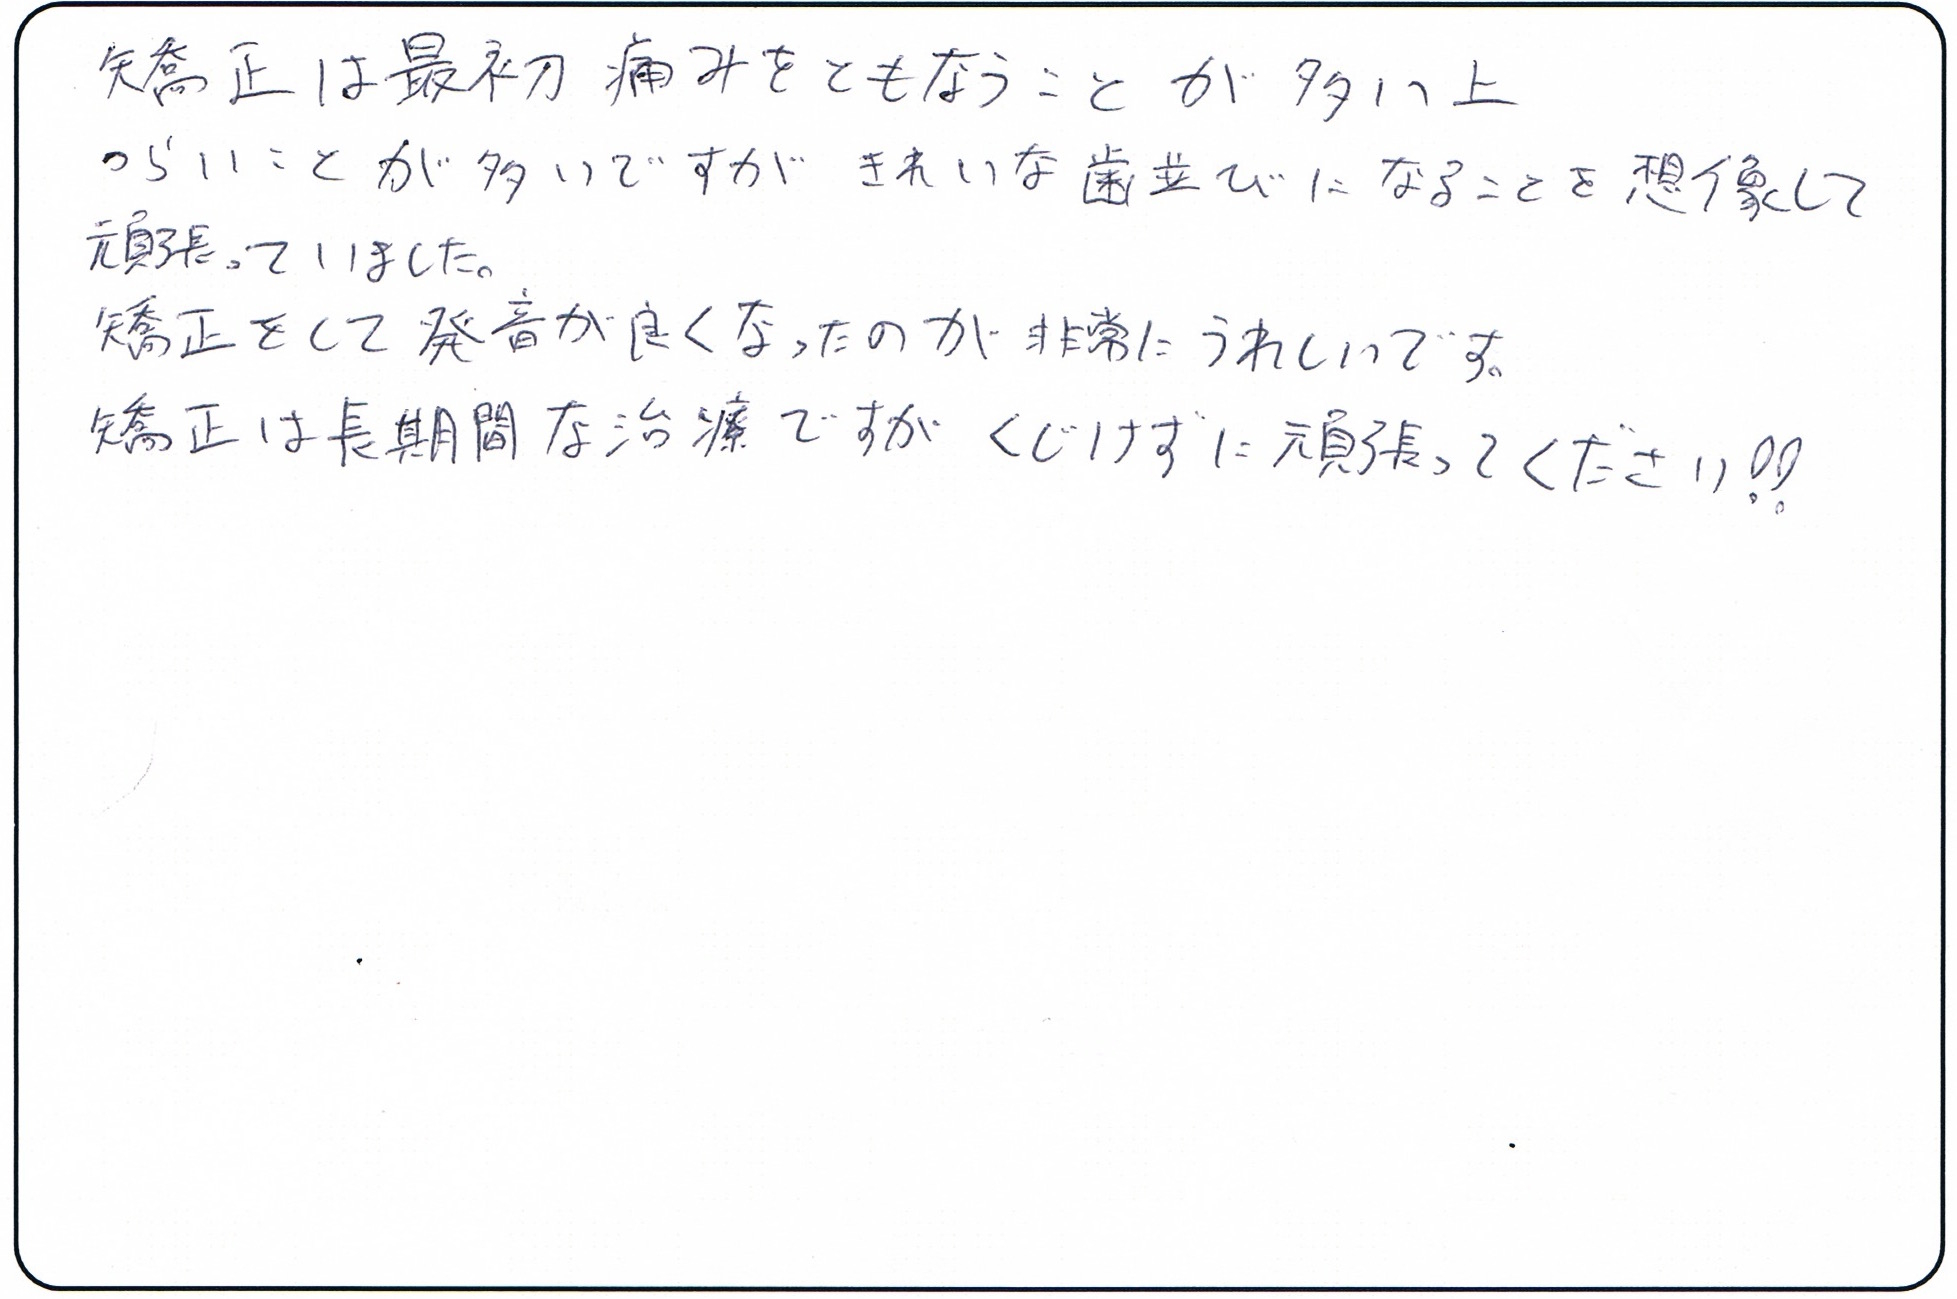 矯正は最初痛みをともなうことが多い上
つらいことが多いですがきれいな歯並びになることを想像して
頑張っていました。
矯正をして発音が良くなったのが非常にうれしいです。
矯正は長期間な治療ですがくじけずに頑張ってください!!